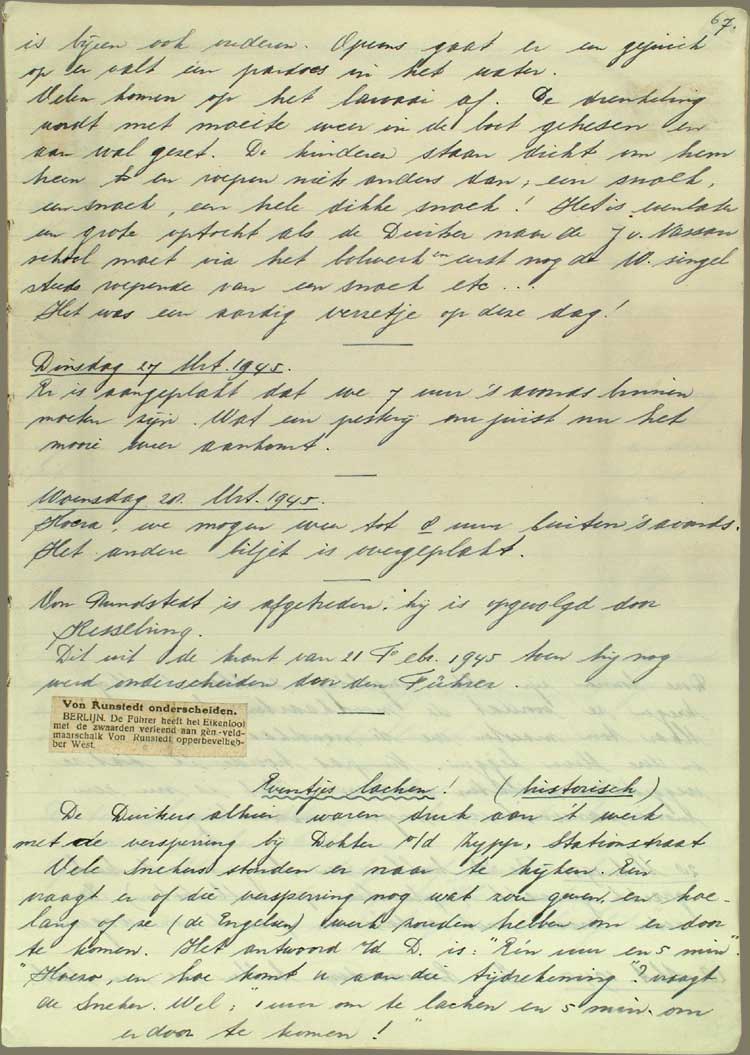 67.
is bijeen ook anderen. Opeens gaat er een gejuich
op er valt een pardoes in het water.
Velen komen op het lawaai af. De drenkeling
wordt met moeite weer in de boot gehesen en
aan wal gezet. De kinderen staan dicht om hem
heen en roepen niets anders dan; een snoek,
een snoek, een hele dikke snoek! Het is
een grote optocht als de Duitser naar de J. v. Nassau
school moet via het bolwerk en eerst nog de W. singel
steeds roepende van een snoek etc...
Het was een aardig verzetje op deze dag!
Dinsdag 27 Mrt. 1945.
Er is aangeplakt dat we 7 uur 's avonds binnen
moeten zijn. Wat een pesterij om juist nu het
mooie weer aankomt.
Woensdag 28. Mrt. 1945.
Hoera, we mogen weer tot 8 uur buiten 's avonds.
Het andere biljet is overgeplakt.
Von Rundstedt is afgetreden. hij is opgevolgd door
Kesselring.
Dit uit de krant van 21 Febr. 1945 toen hij nog
werd onderscheiden door den Führer.
Von Runstedt onderscheiden.
BERLIJN. De Führer heeft het Eikenloof
met de zwaarden verleend aan gen.-veld-
maarschalk Von Runstedt opperbevelheb-
ber West.
Eventjes lachen! (historisch)
De Duitsers alhier waren druk aan 't werk
met de versperring bij Dokter v/d Zypp, Stationstraat
Vele Snekers stonden er naar te kijken. Eén
vraagt er of die versperring nog wat zou geven, en hoe-
lang of ze (de Engelsen) werk zouden hebben om er door
te komen. Het antwoord v/d D. is: "Eén uur en 5 min".
"Hoezo, en hoe komt u aan die tijdrekening? vraagt
de Sneker. Wel; "1 uur om te lachen en 5 min. om
er door te komen!"